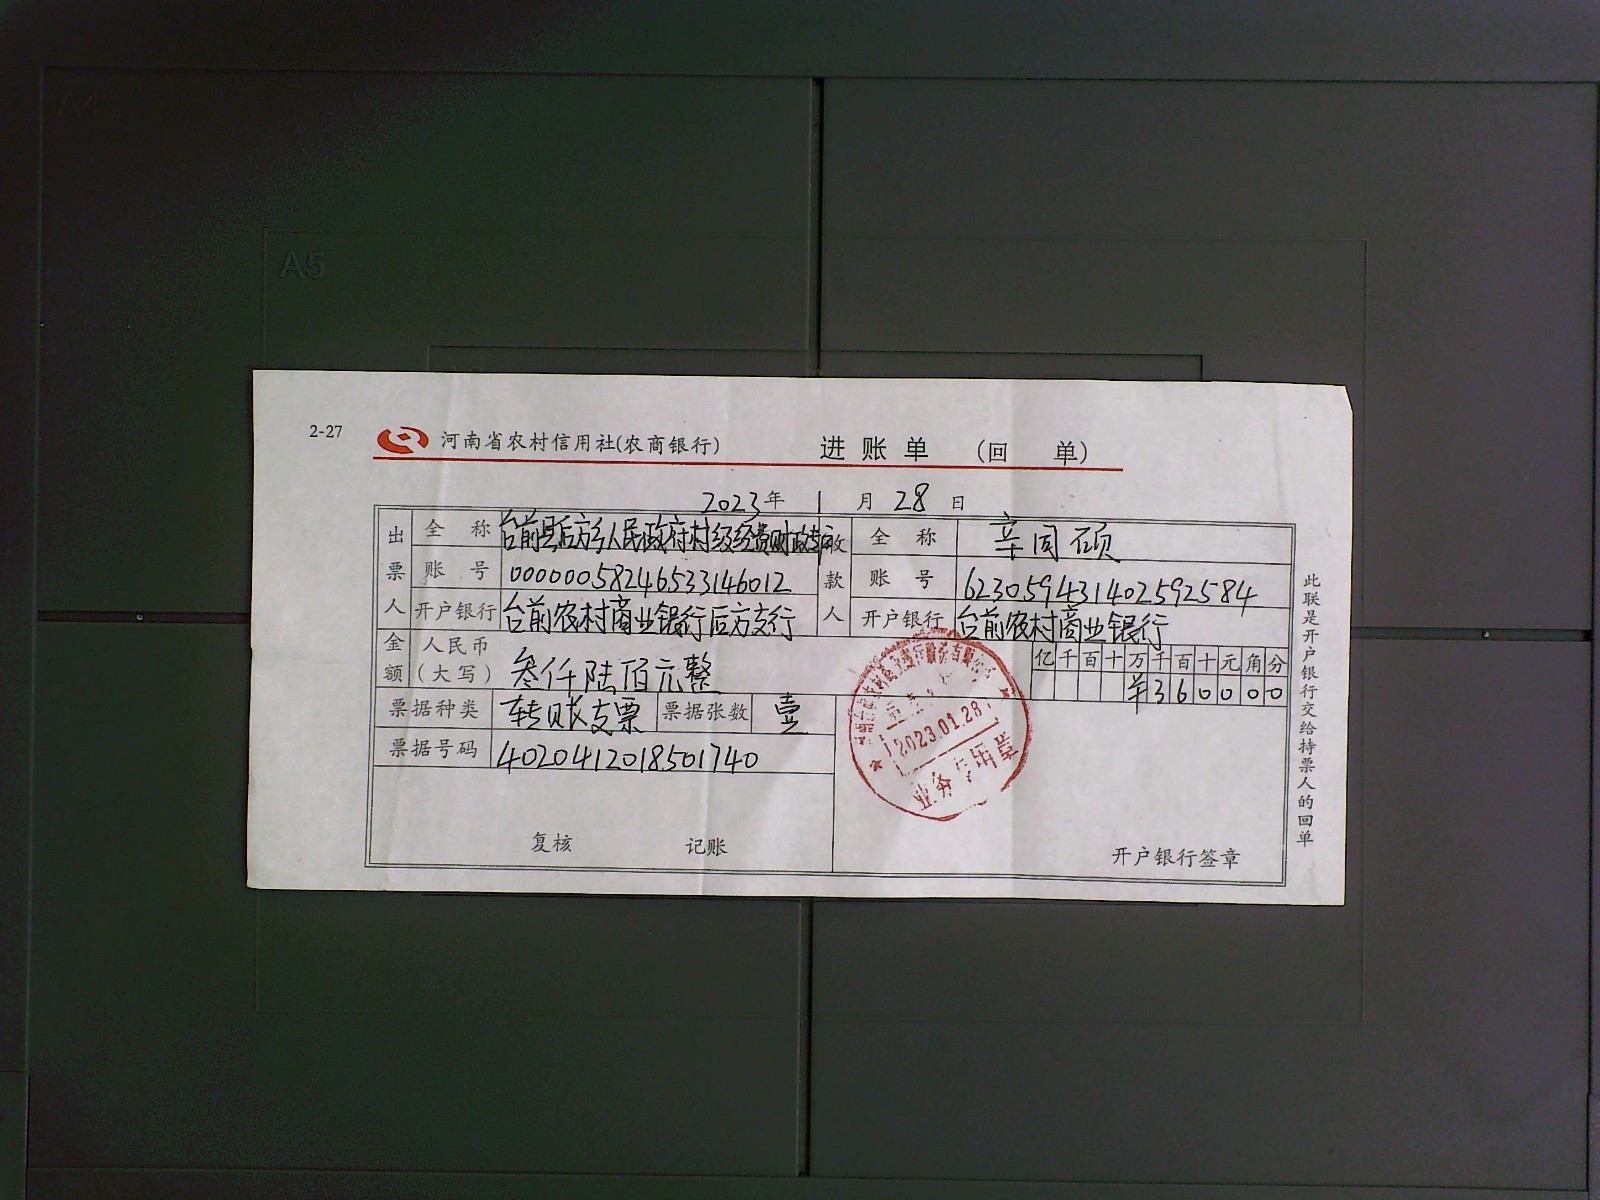 A5
2-27 河南省农村信用社(农商银行) 进账单 (回 单)
2023年 1月 28日
出票人 全称 台前县后方乡人民政府村级经费财政专户 收款人 全称 辛同硕
账号 00000058246533146012 账号 623059431402592584
开户银行 台前农村商业银行后方支行 开户银行 台前农村商业银行
金额 人民币(大写) 叁仟陆佰元整 亿千百十万千百十元角分
¥360000
票据种类 转账支票 票据张数 壹
票据号码 4020412018501740
2023.01.28
业务专用章
复核 记账 开户银行签章
此联是开户银行交给持票人的回单